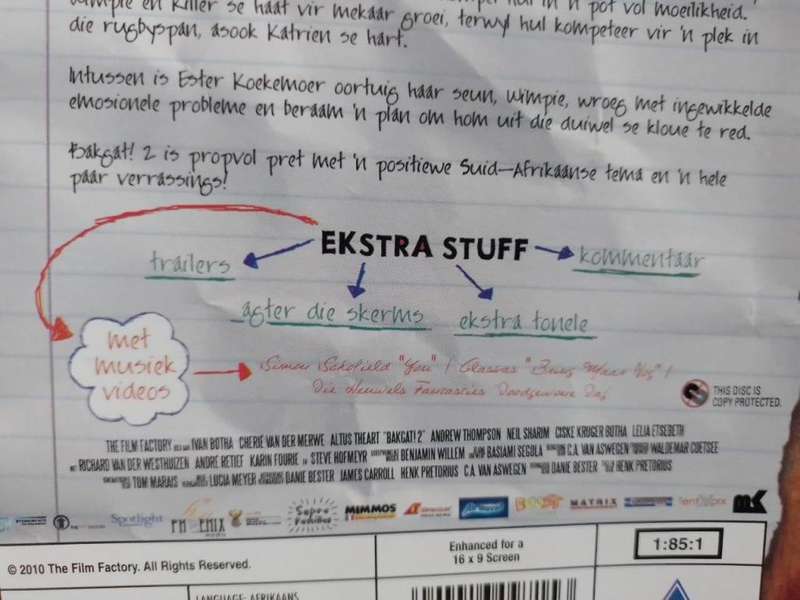 Wimpie en Killer se haat vir mekaar groei, terwyl hul kompeteer vir 'n plek in
die rugbyspan, asook Katrien se hart.
Intussen is Ester Koekemoer oortuig haar seun, Wimpie, wroeg met ingewikkelde
emosionele probleme en beraam 'n plan om hom uit die duiwel se kloue te red.
Bakgat! 2 is propvol pret met 'n positiewe Suid-Afrikaanse tema en 'n hele
paar verrassings!
EKSTRA STUFF
trailers
kommentaar
agter die skerms
ekstra tonele
met
musiek
videos
"You" /
Die Heuwels Fantasties Doodgewone Dag
THIS DISC IS
COPY PROTECTED.
THE FILM FACTORY IVAN BOTHA CHERIE VAN DER MERWE ALTUS THEART "BAKGAT! 2" ANDREW THOMPSON NEIL SHARIM CISKE KRUGER BOTHA LELIA ETSEBETH
RICHARD VAN DER WESTHUIZEN ANDRE RETIEF KARIN FOURIE STEVE HOFMEYR BENJAMIN WILLEM BASIAMI SEGOLA C.A. VAN ASWEGEN WALDEMAR COETSEE
TOM MARAIS LUCIA MEYER DANIE BESTER JAMES CARROLL HENK PRETORIUS C.A. VAN ASWEGEN DANIE BESTER HENK PRETORIUS
Spotlight MIMMOS MATRIX
© 2010 The Film Factory. All Rights Reserved.
Enhanced for a
16 x 9 Screen
1:85:1
LANGUAGE: AFRIKAANS